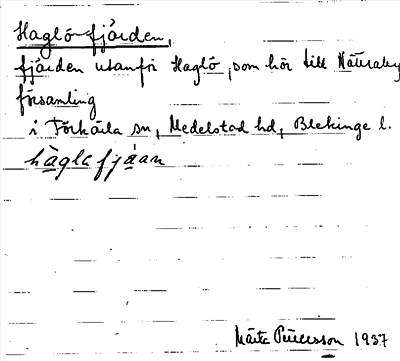 Haglö-fjärden,
fjärden utanför Haglö, som hör till Nättraby
församling
i Förkärla sn, Medelstad hd, Blekinge l.
hàglafjáan
Märta Petersson 1937